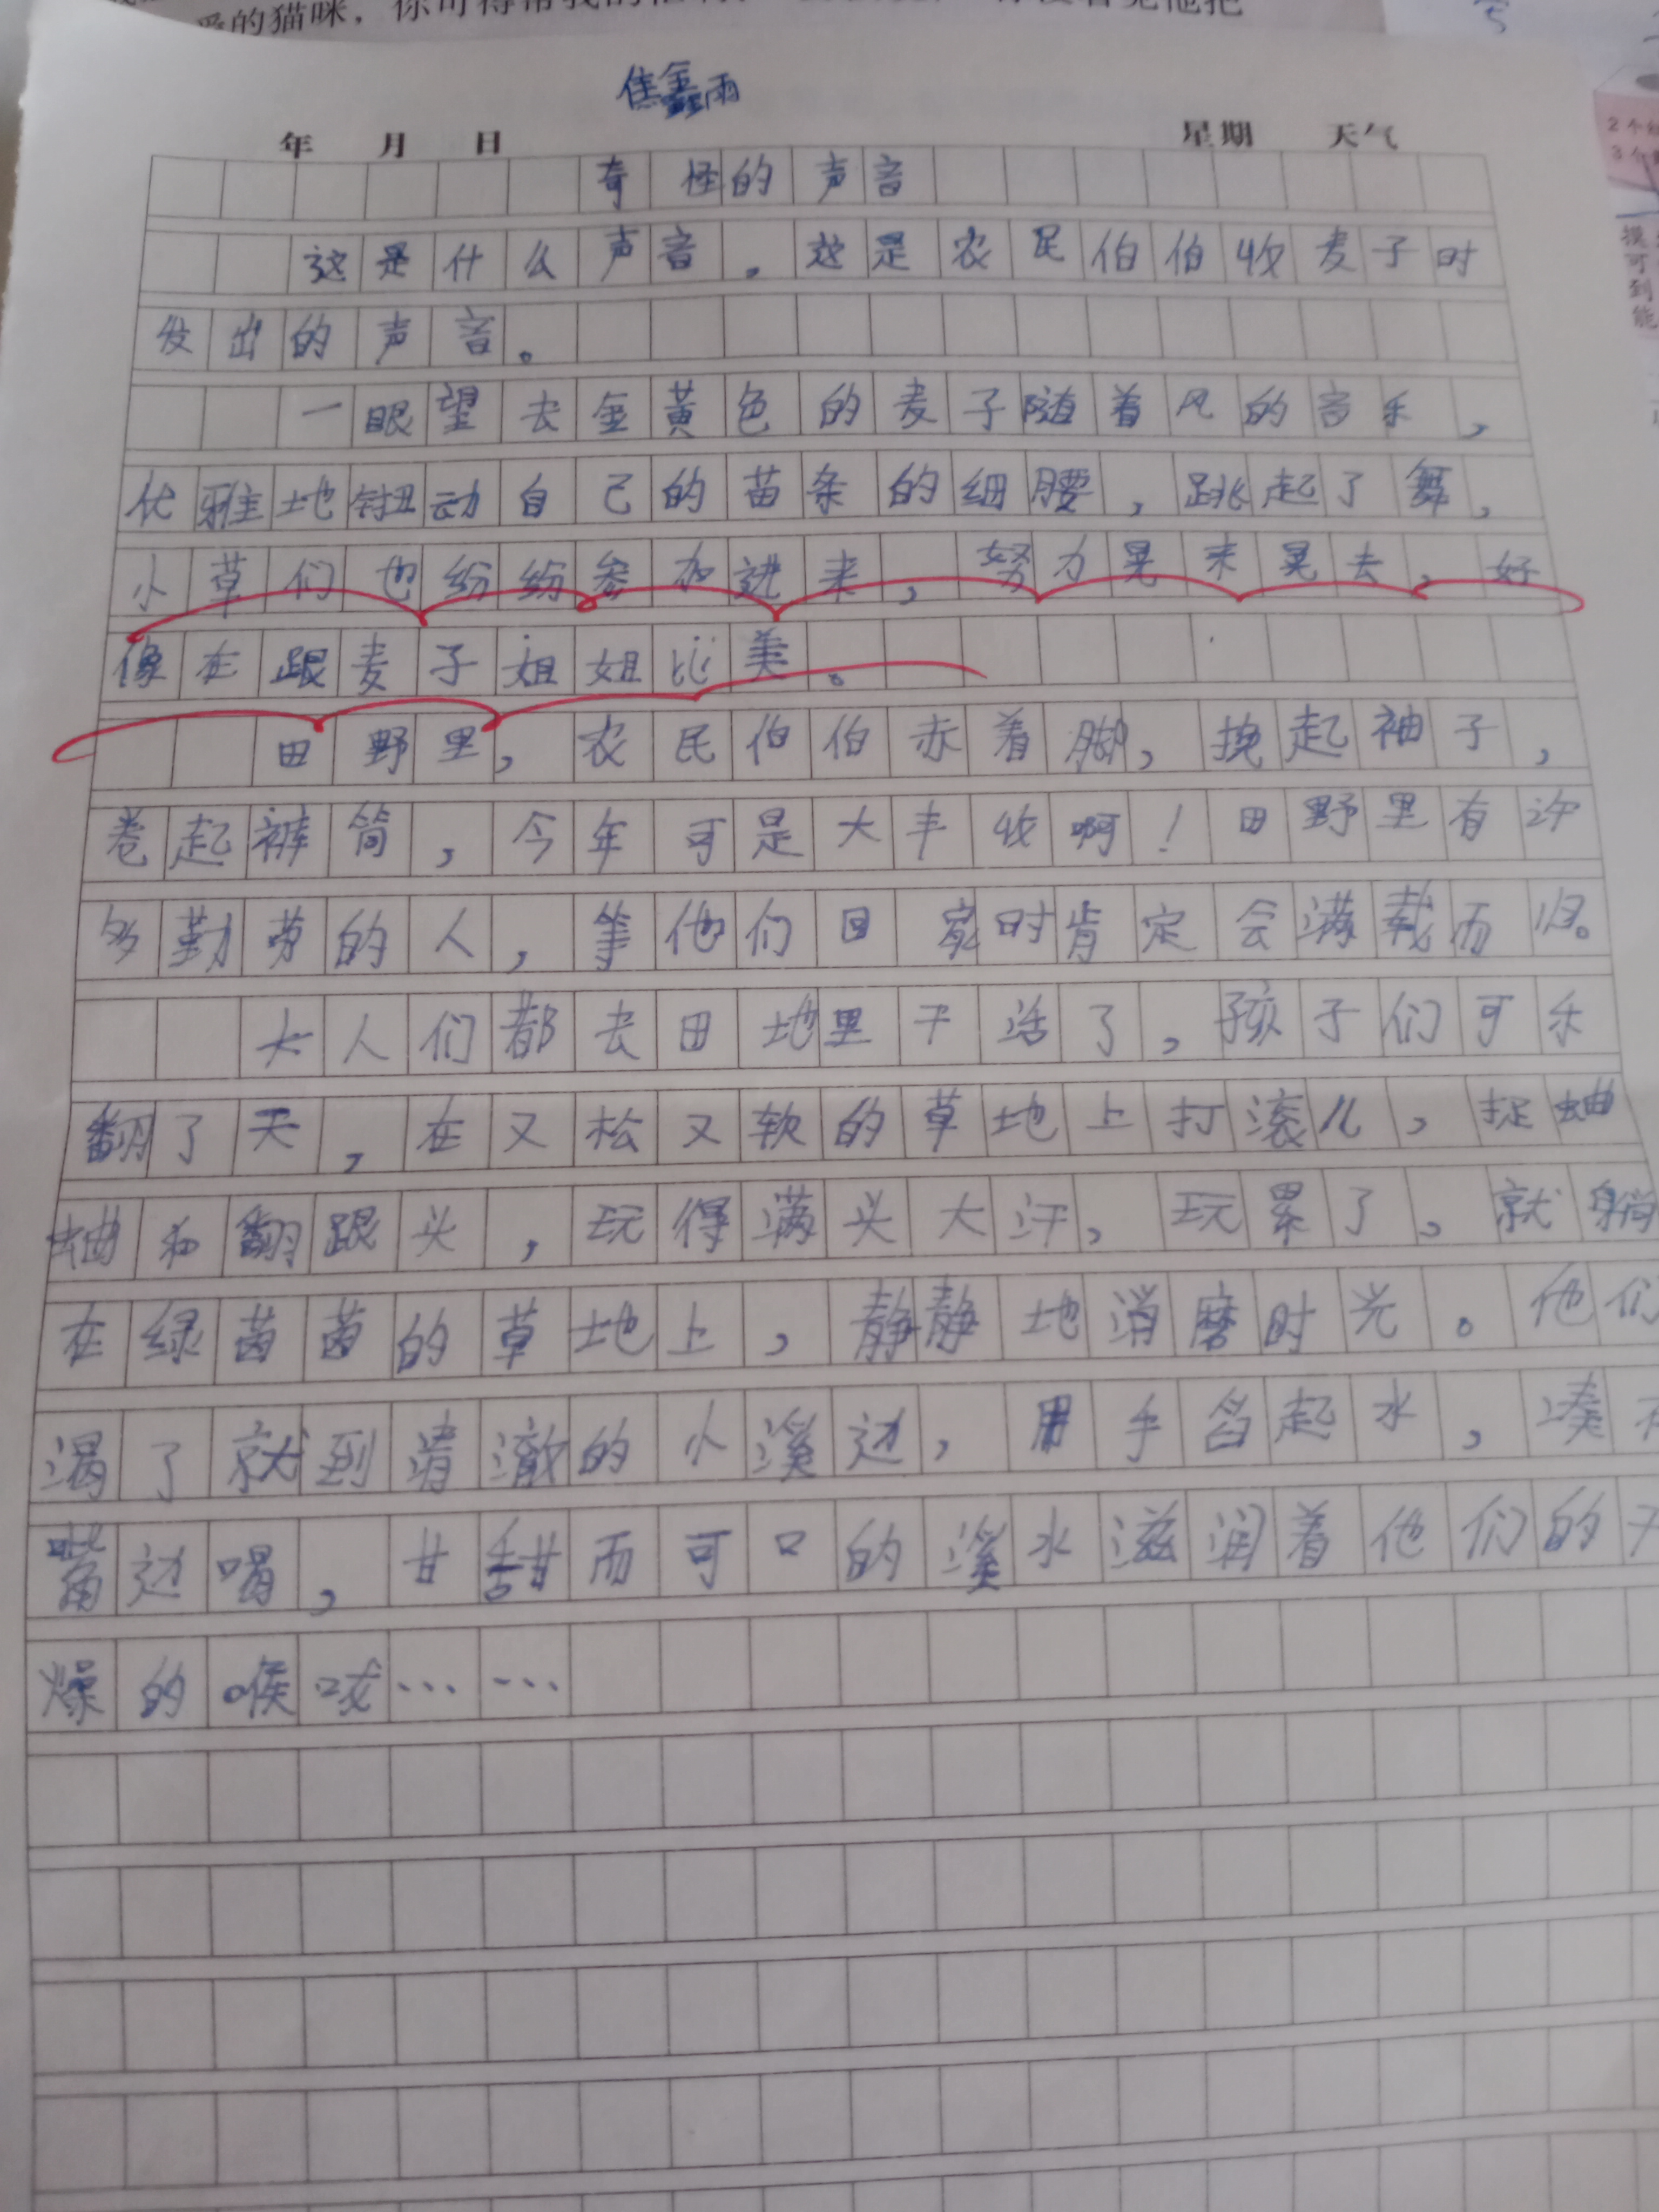 爱的猫咪，你可得帮我的忙
焦鑫雨
年 月 日 星期 天气
奇怪的声音
这是什么声音。这是农民伯伯收麦子时
发出的声音。
一眼望去金黄色的麦子随着风的音乐，
优雅地扭动自己的苗条的细腰，跳起了舞，
小草们也纷纷参加进来，努力晃来晃去，好
像在跟麦子姐姐比美。
田野里，农民伯伯赤着脚，挽起袖子，
卷起裤筒，今年可是大丰收啊！田野里有许
多勤劳的人，等他们回家时肯定会满载而归。
大人们都去田地里干活了，孩子们可乐
翻了天，在又松又软的草地上打滚儿，捉蛐
蛐和翻跟头，玩得满头大汗，玩累了，就躺
在绿茵茵的草地上，静静地消磨时光。他们
渴了就到清澈的小溪边，用手舀起水，凑在
嘴边喝，甘甜而可口的溪水滋润着他们的干
燥的喉咙……
2个
3个
摸
可
到
能